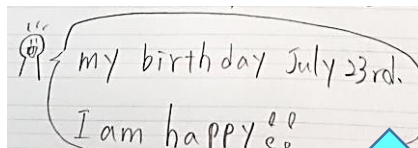 my birthday July 23rd.
I am happy!!